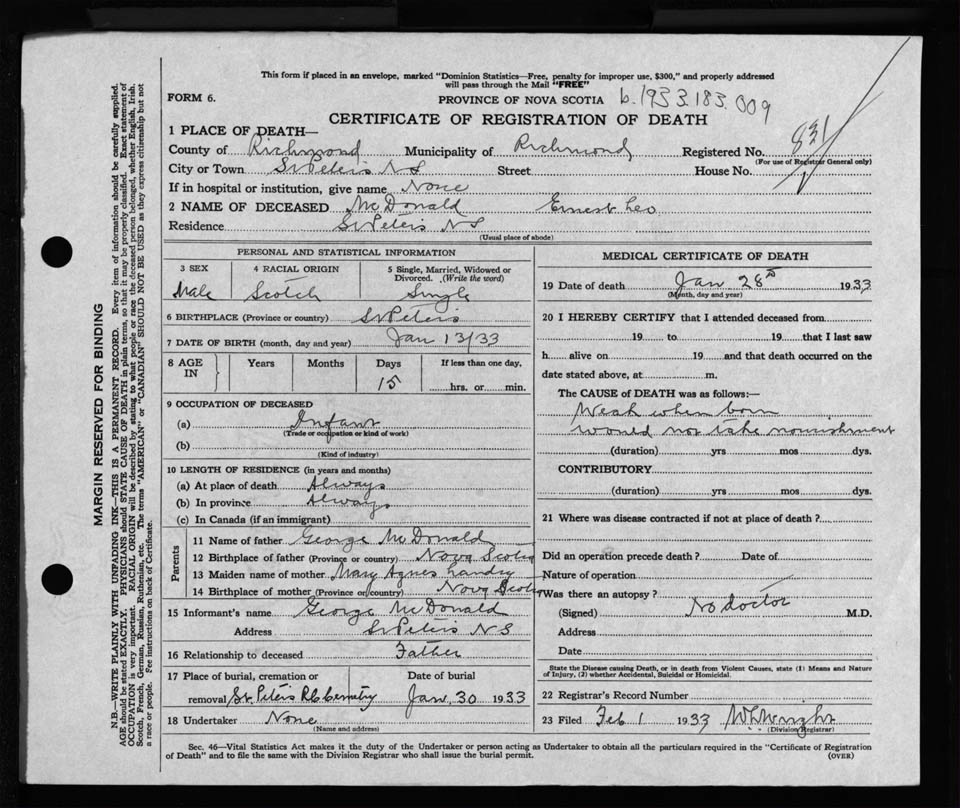 This form if placed in an envelope, marked "Dominion Statistics—Free, penalty for improper use, $300," and properly addressed
will pass through the Mail "FREE"
FORM 6. PROVINCE OF NOVA SCOTIA b. 1933.183.009
CERTIFICATE OF REGISTRATION OF DEATH
1 PLACE OF DEATH—
County of Richmond Municipality of Richmond Registered No. 831
(For use of Registrar General only)
City or Town St Peters NS Street House No.
If in hospital or institution, give name None
2 NAME OF DECEASED McDonald Ernest Leo
Residence St Peters NS
(Usual place of abode)
PERSONAL AND STATISTICAL INFORMATION
3 SEX 4 RACIAL ORIGIN 5 Single, Married, Widowed or Divorced. (Write the word)
Male Scotch Single
6 BIRTHPLACE (Province or country) St Peters
7 DATE OF BIRTH (month, day and year) Jan 13/33
8 AGE IN Years Months Days If less than one day,
15 hrs. or min.
9 OCCUPATION OF DECEASED
(a) Infant
(Trade or occupation or kind of work)
(b)
(Kind of industry)
10 LENGTH OF RESIDENCE (in years and months)
(a) At place of death Always
(b) In province Always
(c) In Canada (if an immigrant)
Parents
11 Name of father George McDonald
12 Birthplace of father (Province or country) Nova Scotia
13 Maiden name of mother Mary Agnes
14 Birthplace of mother (Province or country) Nova Scotia
15 Informant's name George McDonald
Address St Peters NS
16 Relationship to deceased Father
17 Place of burial, cremation or Date of burial
removal St. Peters RC Cemetry Jan 30 1933
18 Undertaker None
(Name and address)
MEDICAL CERTIFICATE OF DEATH
19 Date of death Jan 28th 1933
(Month, day and year)
20 I HEREBY CERTIFY that I attended deceased from
19 to 19 that I last saw
h alive on 19 and that death occurred on the
date stated above, at m.
The CAUSE of DEATH was as follows:—
Weak when born
would not take nourishment
(duration) yrs mos dys.
CONTRIBUTORY
(duration) yrs mos dys.
21 Where was disease contracted if not at place of death ?
Did an operation precede death ? Date of
Nature of operation
Was there an autopsy ?
(Signed) No doctor M.D.
Address
Date
State the Disease causing Death, or in death from Violent Causes, state (1) Means and Nature
of Injury, (2) whether Accidental, Suicidal or Homicidal.
22 Registrar's Record Number
23 Filed Feb 1 1933 Wright
(Division Registrar)
Sec. 46—Vital Statistics Act makes it the duty of the Undertaker or person acting as Undertaker to obtain all the particulars required in the "Certificate of Registration
of Death" and to file the same with the Division Registrar who shall issue the burial permit. (OVER)
MARGIN RESERVED FOR BINDING
N.B.—WRITE PLAINLY WITH UNFADING INK—THIS IS A PERMANENT RECORD. Every item of information should be carefully supplied.
AGE should be stated EXACTLY. PHYSICIANS should STATE CAUSE OF DEATH in plain terms, so that it may be properly classified. Exact statement of
OCCUPATION is very important. RACIAL ORIGIN will be described by stating to what people or race the deceased person belonged, whether English, Irish,
Scotch, French, German, Russian, Ruthenian, etc. The terms "AMERICAN" or "CANADIAN" SHOULD NOT BE USED as they express citizenship but not
a race or people. See instructions on back of Certificate.